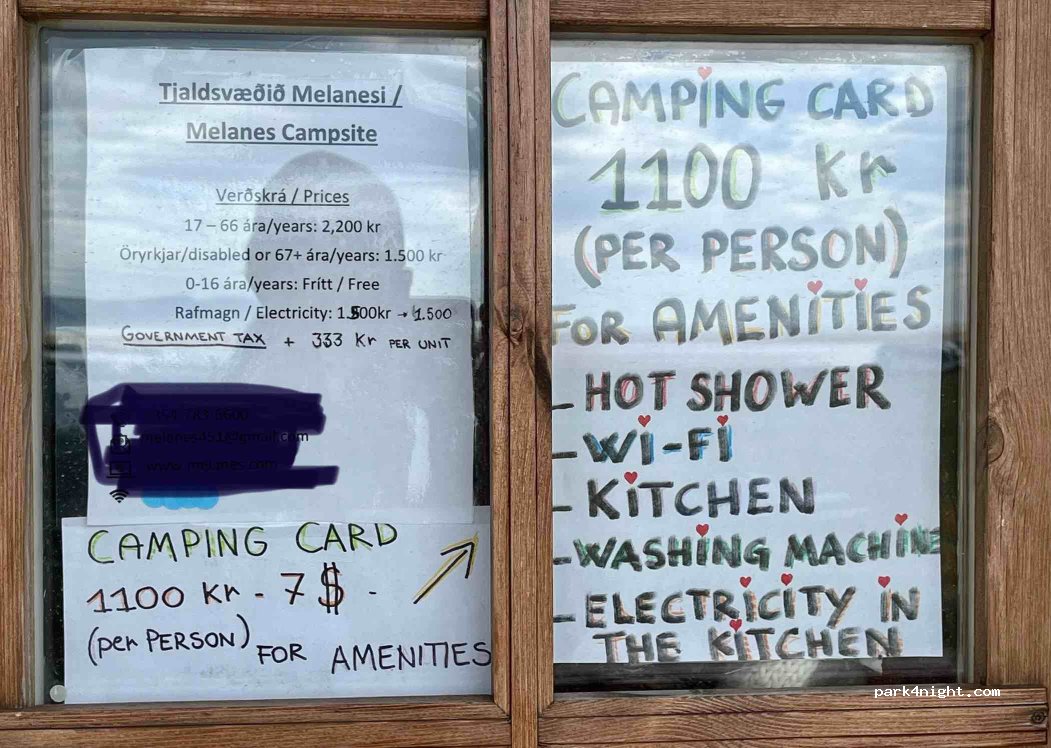 Tjaldsvæðið Melanesi /
Melanes Campsite
Verðskrá / Prices
17 – 66 ára/years: 2,200 kr
Öryrkjar/disabled or 67+ ára/years: 1.500 kr
0-16 ára/years: Frítt / Free
Rafmagn / Electricity: 1.500kr → 1.500
GOVERNMENT TAX + 333 Kr PER UNIT
CAMPING CARD
1100 Kr - 7 $ -
(per PERSON) FOR AMENITIES
CAMPING CARD
1100 Kr
(PER PERSON)
FOR AMENITIES
- HOT SHOWER
- WI-FI
- KITCHEN
- WASHING MACHINE
- ELECTRICITY IN
THE KITCHEN
park4night.com